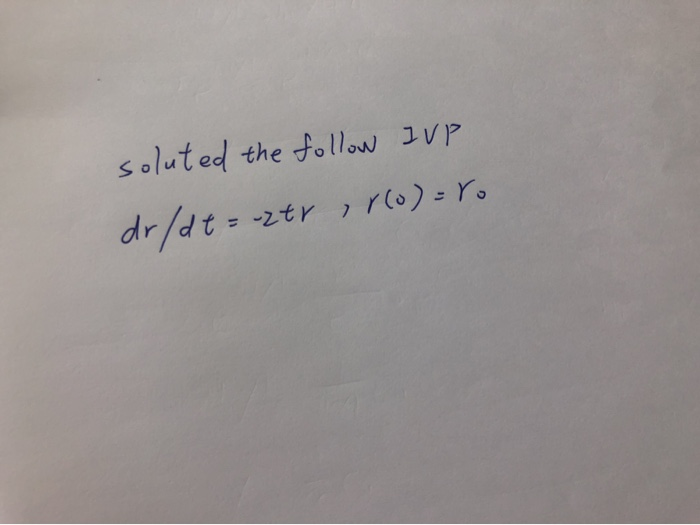 soluted the follow IVP
dr/dt = -2tr , r(0) = r₀